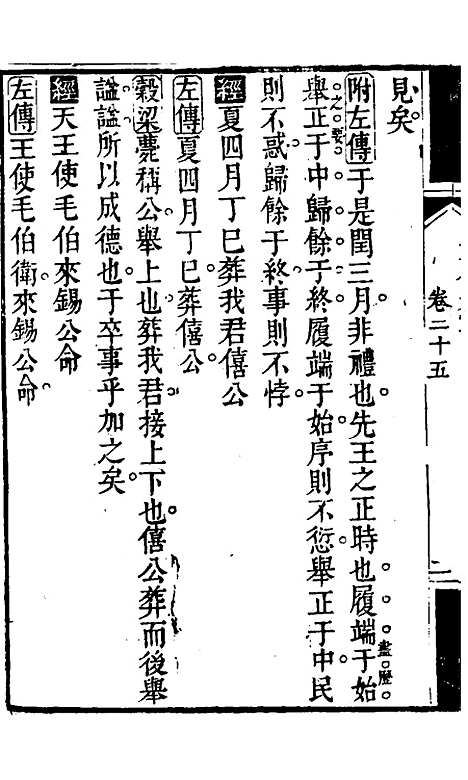 見矣
附左傳于是閏三月非禮也先王之正時也履端于始
舉正于中歸餘于終履端于始序則不愆舉正于中民
則不惑歸餘于終事則不悖
經夏四月丁巳葬我君僖公
左傳夏四月丁巳葬僖公
穀梁薨稱公舉上也葬我君接上下也僖公葬而後舉
諡諡所以成德也于卒事乎加之矣
經天王使毛伯來錫公命
左傳王使毛伯衛來錫公命
卷二十五
二